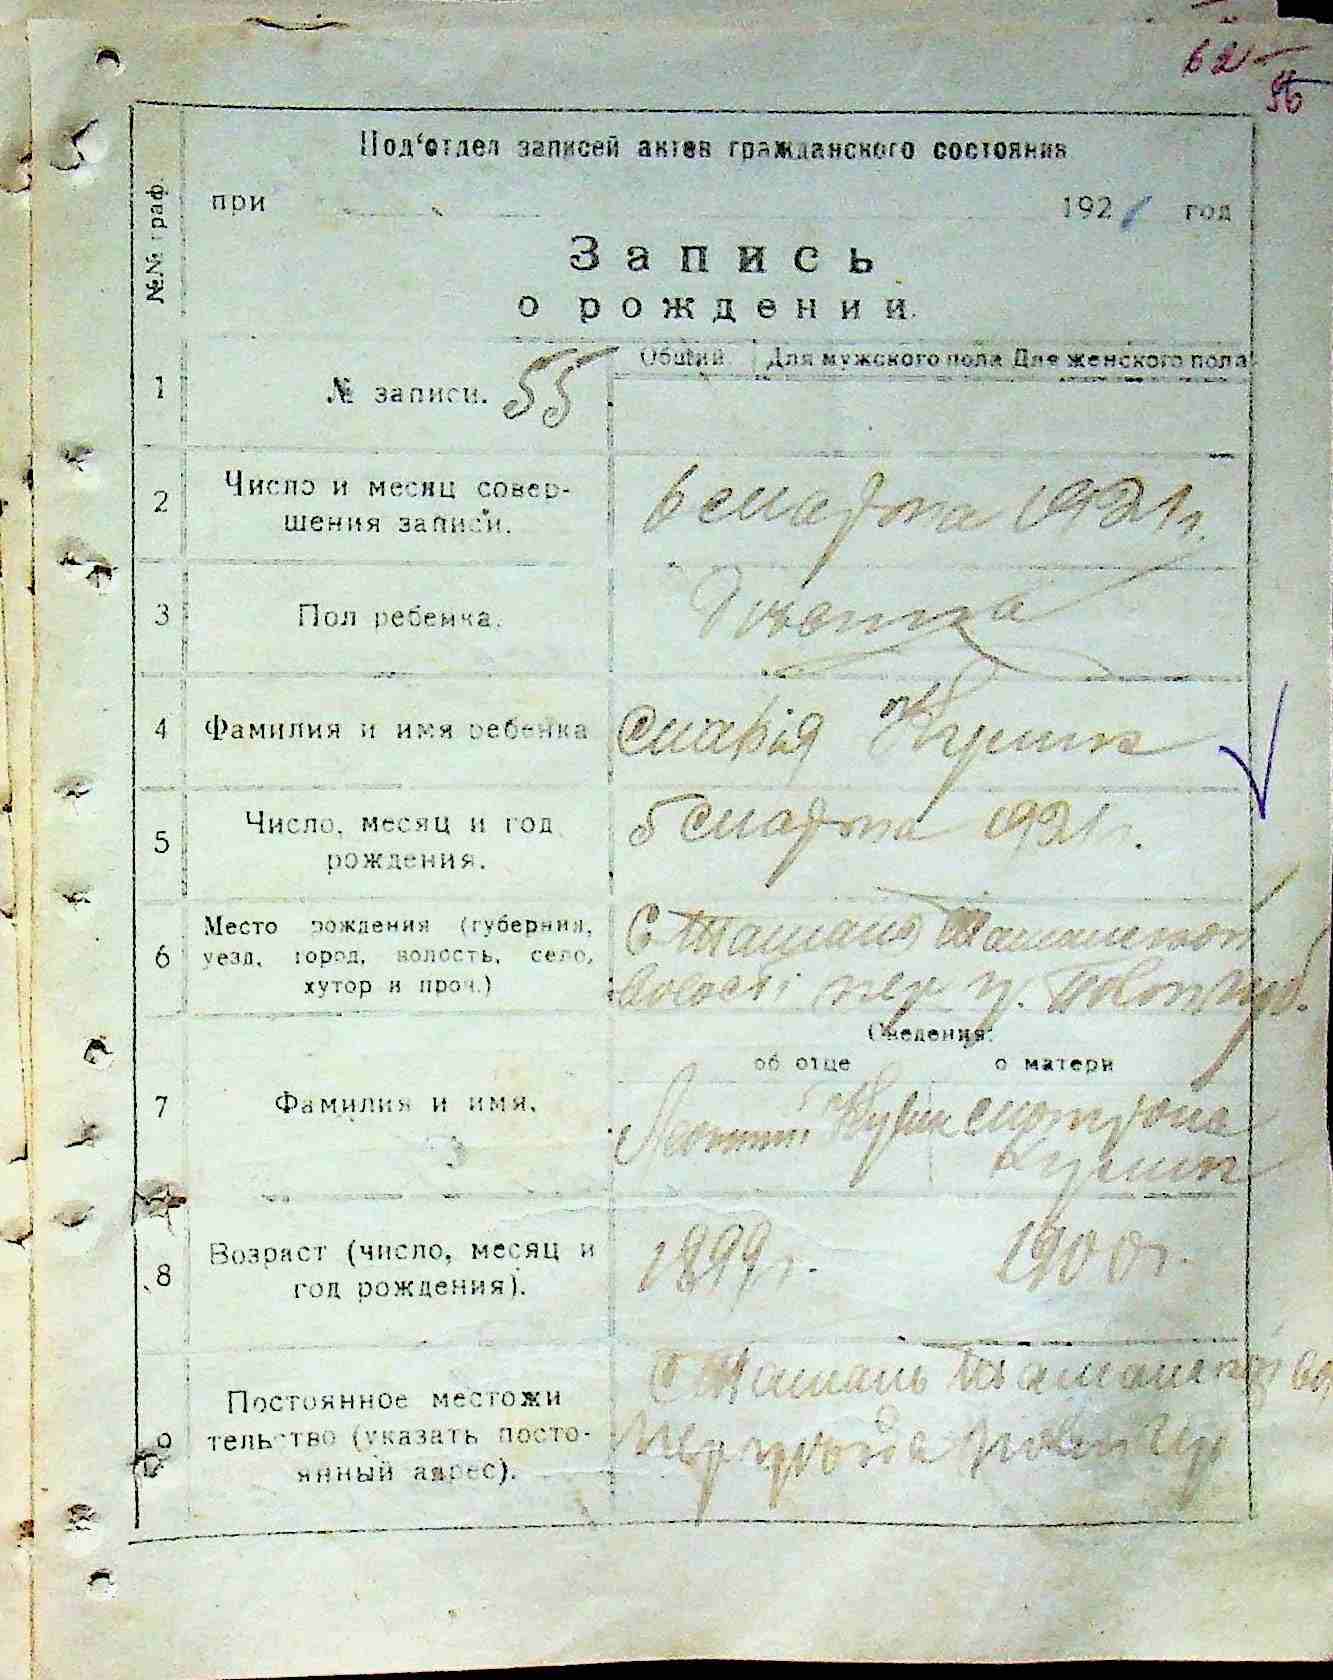 62
56
Под‘отдел записей актов гражданского состояния
при 1921 год
№№ граф.
Запись
о рождении.
1 № записи. 55
Общий Для мужского пола Для женского пола
2 Число и месяц совер-
шения записи.
6 марта 1921 г.
3 Пол ребенка.
4 Фамилия и имя ребенка
Марія
5 Число, месяц и год
рождения.
5 марта 1921 г.
6 Место рождения (губерния,
уезд, город, волость, село,
хутор и проч.)
С. Ташань Ташанской
волості пер у. Полт губ.
Сведения:
об отце о матери
7 Фамилия и имя.
8 Возраст (число, месяц и
год рождения).
1899 г. 1900 г.
9 Постоянное местожи
тельство (указать посто-
янный адрес).
С Ташань Ташанскої вол